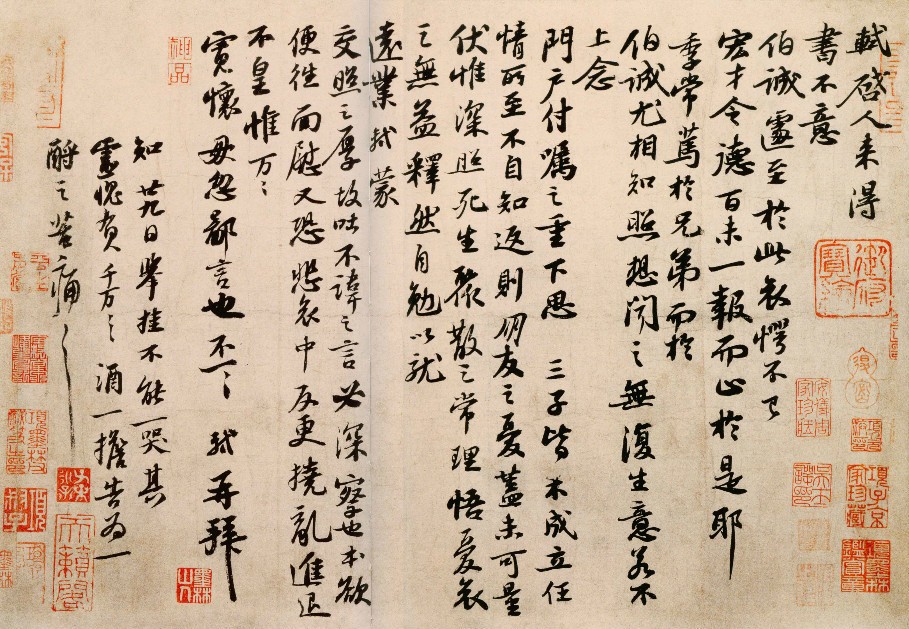 軾啓人来得
書不意
伯誠遽至於此哀愕不已
宏才令德百未一報而止於是耶
季常篤於兄弟而於
伯誠尤相知照想聞之無復生意若不
上念
門户付囑之重下思三子皆未成立任
情所至不自知返則朋友之憂蓋未可量
伏惟深照死生聚散之常理悟憂哀
之無益釋然自勉以就
遠業軾蒙
交照之厚故吐不諱之言必深察也本欲
便往面慰又恐悲哀中反更撓亂進退
不皇惟万〻
寬懷毋忽鄙言也不一〻軾再拜
知廿九日舉挂不能一哭其
靈愧負千万〻酒一擔告為一
酹之苦痛〻
神品
御府寶繪
項子京家珍藏
墨林山人
天籟閣